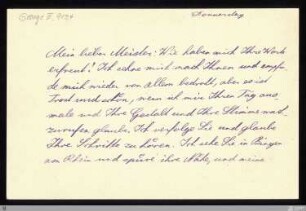 George III, 
Donnerstag
Mein lieber Meister: Wie haben mich Ihre Worte
erfreut! Ich sehne mich nach Ihnen und empfin-
de mich wieder von allem bedroht, aber so ist
Trost und schön, wenn ich mir Ihren Tag aus-
male und Ihre Gestalt und Ihre Stimme nach-
zurufen glaube. Ich verfolge Sie und glaube
Ihre Schritte zu hören. Ich sehe Sie in Bingen
am Rhein und spüre ihre Nähe, und meine